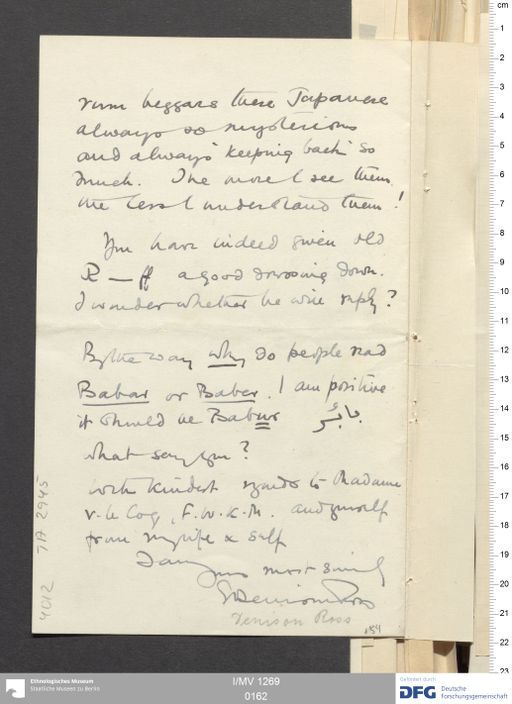 rum beggars these Japanese
always so mysterious
and always "keeping back" so
much. The more I see them,
the less I understand them!
You have indeed given old
R—ff a good dressing down.
I wonder whether he will reply?
By the way why do people read
Babar or Baber. I am positive
it should be Babur بابُر
what say you?
With kindest regards to Madame
v. le Coq, F.W.K.M. and yourself
from my wife & self
I am yours most sincerely
E Denison Ross
Denison Ross
TA 2945
4012
154
Ethnologisches Museum
Staatliche Museen zu Berlin
I/MV 1269
0162
Gefördert durch
DFG Deutsche
Forschungsgemeinschaft
cm
1
2
3
4
5
6
7
8
9
10
11
12
13
14
15
16
17
18
19
20
21
22
23